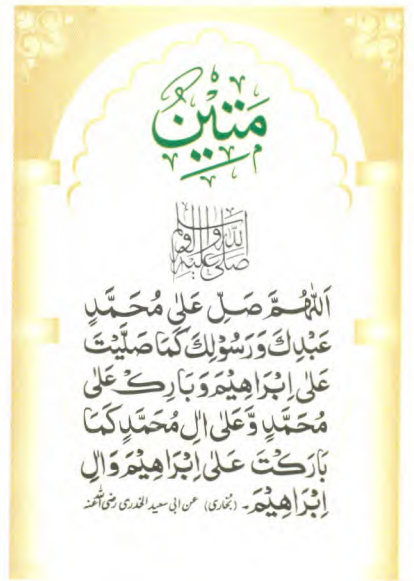 مَتِيْنٌ
صلى الله عليه وآله وسلم
اَللّٰهُمَّ صَلِّ عَلٰى مُحَمَّدٍ
عَبْدِكَ وَرَسُوْلِكَ كَمَا صَلَّيْتَ
عَلٰى اِبْرَاهِيْمَ وَبَارِكْ عَلٰى
مُحَمَّدٍ وَّعَلٰى اٰلِ مُحَمَّدٍ كَمَا
بَارَكْتَ عَلٰى اِبْرَاهِيْمَ وَاٰلِ
اِبْرَاهِيْمَ۔ (بخاری) عن ابی سعید الخدری رضی اللہ عنہ